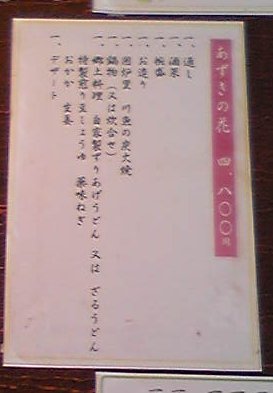 あずきの花 四、八〇〇円
一、通し
一、酒菜
一、椀盛
一、お造り
一、囲炉裏 川魚の炭火焼
一、鍋物（又は炊合せ）
一、郷土料理 自家製ずりあげうどん 又は ざるうどん
特製煎り豆しょうゆ 薬味ねぎ
おかか 生姜
一、デザート